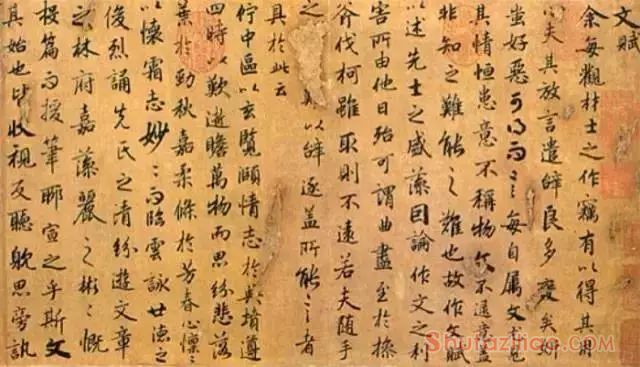 文賦
余每觀材士之作竊有以得其用
心夫其放言遣辭良多變矣妍
蚩好惡可得而言每自屬文尤見
其情恒患意不稱物文不逮意盖
非知之難能之難也故作文賦
以述先士之盛藻因論作文之利
害所由他日殆可謂曲盡至於操
斧伐柯雖取則不遠若夫随手
之難以辞逐盖所能言者
具於此云
佇中區以玄覽頤情志於典墳遵
四時以歎逝瞻萬物而思紛悲落
葉於勁秋嘉柔條於芳春心懍〻
以懷霜志妙〻而臨雲詠世德之
俊烈誦先民之清紛遊文章
之林府嘉藻麗之彬〻慨
投篇而援筆聊宣之乎斯文
其始也皆收視反聽躭思旁訊
Shufaziliao.com